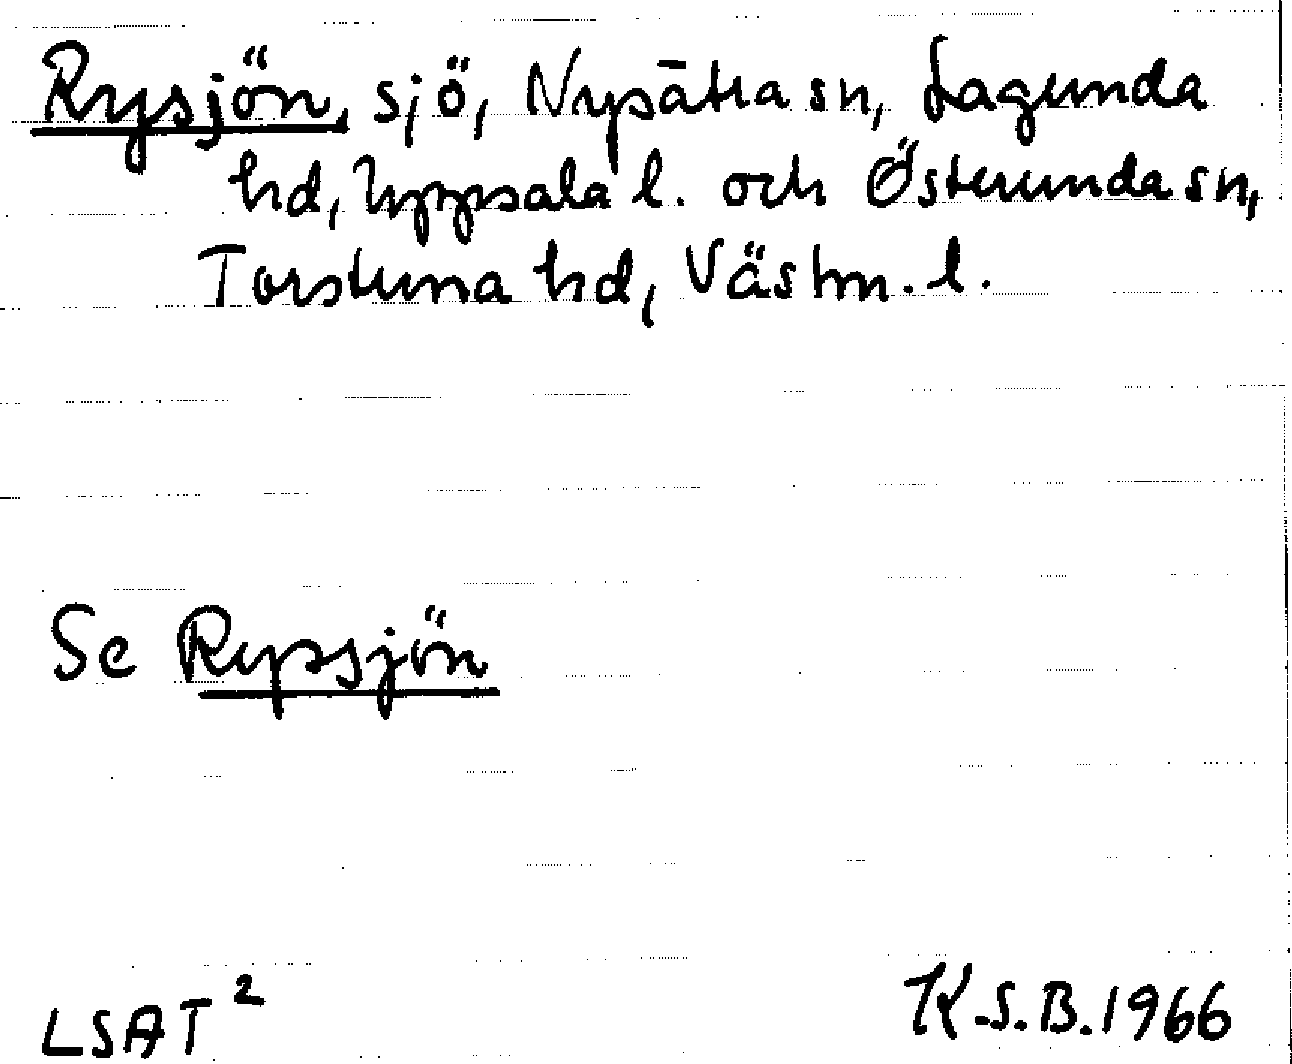 Rysjön, sjö, Nysätra sn, Lagunda
hd, Uppsala l. och Österunda sn,
Torstuna hd, Västm. l.
Se Rypsjön
LSAT²
K.S.B. 1966